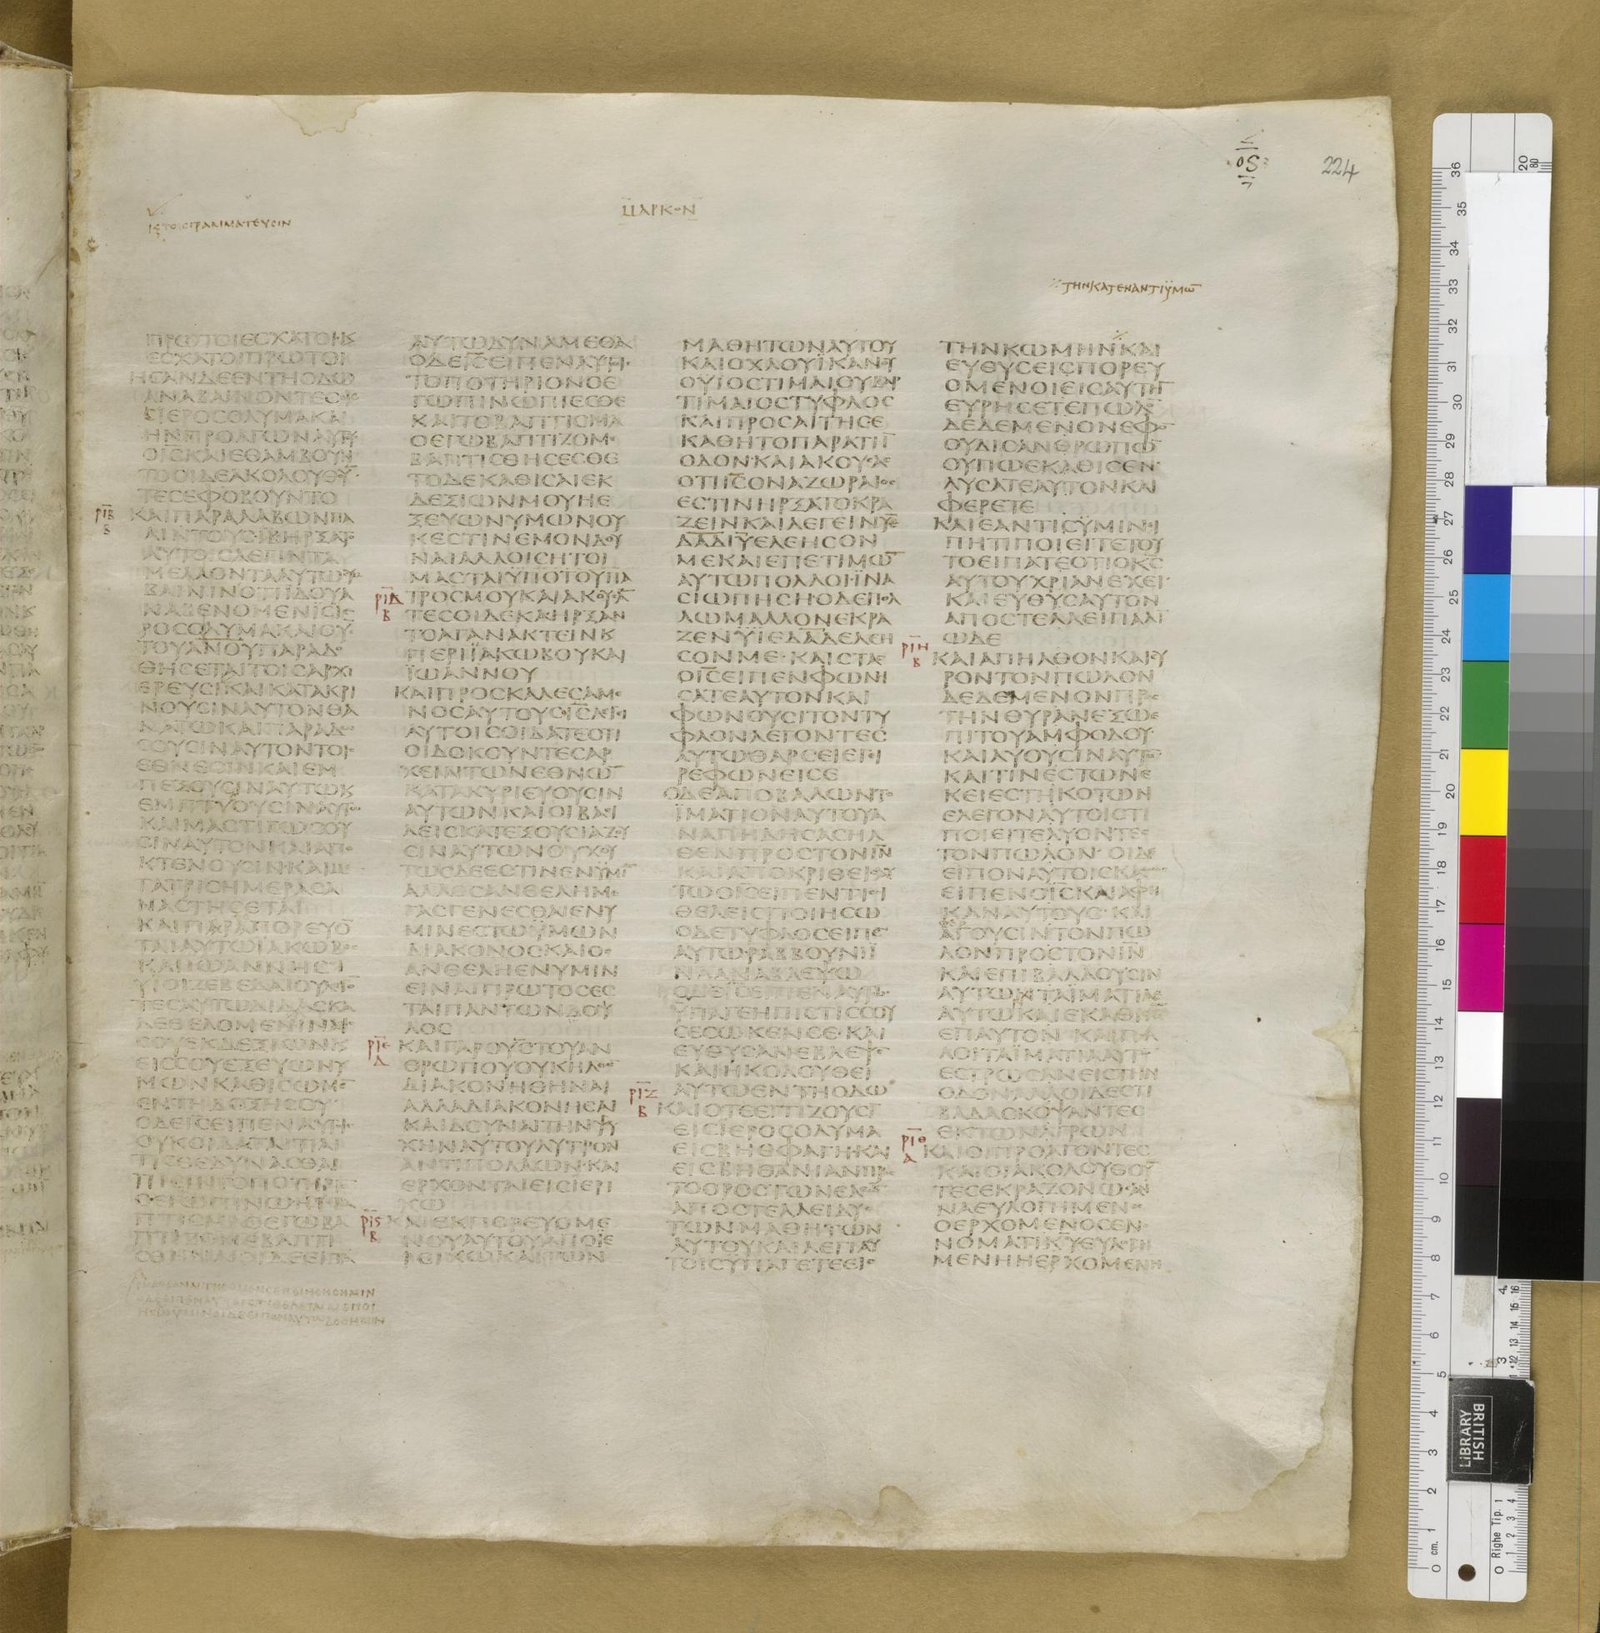 ΜΑΡΚΟΝ
224
ΤΟΙΣ ΓΡΑΜΜΑΤΕΥΣΙΝ
ΤΗΝΚΑΤΕΝΑΝΤΙΫΜΩ̅
ΠΡΩΤΟΙΕΣΧΑΤΟΙΚ
ΕΣΧΑΤΟΙΠΡΩΤΟΙ
ΗΣΑΝΔΕΕΝΤΗΟΔΩ
ΑΝΑΒΑΙΝΟΝΤΕΣ
ΕΙΕΡΟΣΟΛΥΜΑΚΑΙ
ΗΝΠΡΟΑΓΩΝΑΥΤΥ
ΟΙΣΚΑΙΕΘΑΜΒΟΥΝ
ΤΟΟΙΔΕΑΚΟΛΟΥΘΥ̅
ΤΕΣΕΦΟΒΟΥΝΤΟ
ΡΙΒ
Β
ΚΑΙΠΑΡΑΛΑΒΩΝΠΑ
ΛΙΝΤΟΥΣΙΒΗΡΞΑΤΟ
ΑΥΤΟΙΣΛΕΓΙΝΤΑ
ΜΕΛΛΟΝΤΑΑΥΤΩ
ΒΑΙΝΙΝΟΤΙΪΔΟΥΑ
ΝΑΒΕΝΟΜΕΝΙΣΪΕ
ΡΟΣΟΛΥΜΑΚΑΙΟΥ
ΤΟΥΑΝΟΥΠΑΡΑΔΟ
ΘΗΣΕΤΑΙΤΟΙΣΑΡΧΙ
ΕΡΕΥΣΙΚΑΙΚΑΤΑΚΡΙ
ΝΟΥΣΙΝΑΥΤΟΝΘΑ
ΝΑΤΩΚΑΙΠΑΡΑΔΩ
ΣΟΥΣΙΝΑΥΤΟΝΤΟΙ
ΕΘΝΕΣΙΝΚΑΙΕΜ
ΠΕΞΟΥΣΙΝΑΥΤΩΚ
ΕΜΠΤΥΟΥΣΙΝΑΥΤΩ
ΚΑΙΜΑΣΤΙΓΩΣΟΥ
ΣΙΝΑΥΤΟΝΚΑΙΑΠΟ
ΚΤΕΝΟΥΣΙΝΚΑΙΜΕ
ΤΑΤΡΙΣΗΜΕΡΑΣΑ
ΝΑΣΤΗΣΕΤΑΙ
ΚΑΙΠΑΡΑΠΟΡΕΥΟ̅
ΤΑΙΑΥΤΩΪΑΚΩΒΟΣ
ΚΑΙΪΩΑΝΝΗΣ
ΥΙΟΙΖΕΒΕΔΑΙΟΥ
ΤΕΣΑΥΤΩΔΙΔΑΣΚΑ
ΛΕΘΕΛΟΜΕΝΙΝΑ
ΣΟΥΕΚΔΕΞΙΩΝΚ
ΕΙΣΣΟΥΕΞΕΥΩΝΥ
ΜΩΝΚΑΘΙΣΩΜΕ̅
ΕΝΤΗΔΟΞΗΣΟΥ
ΟΔΕΙΣΕΙΠΕΝΑΥΤΟΙ
ΟΥΚΟΙΔΑΤΑΙΤΙΑΙ
ΤΙΣΘΕΔΥΝΑΣΘΑΙ
ΠΙΕΙΝΤΟΠΟΤΗΡΙΟ̅
ΟΕΓΩΠΙΝΩΗΤΟΒΑ
ΠΤΙΣΜΑΟΕΓΩΒΑ
ΠΤΙΖΟΜΕΒΑΠΤΙ
ΣΘΗΝΑΙΟΙΔΕΕΙΠΑ
ΑΥΤΩΔΥΝΑΜΕΘΑ
ΟΔΕΙΣΕΙΠΕΝΑΥΤΟΙ
ΤΟΠΟΤΗΡΙΟΝΟΕ
ΓΩΠΙΝΩΠΙΕΣΘΕ
ΚΑΙΤΟΒΑΠΤΙΣΜΑ
ΟΕΓΩΒΑΠΤΙΖΟΜΕ
ΒΑΠΤΙΣΘΗΣΕΣΘΕ
ΤΟΔΕΚΑΘΙΣΑΙΕΚ
ΔΕΞΙΩΝΜΟΥΗΕ
ΞΕΥΩΝΥΜΩΝΟΥ
ΚΕΣΤΙΝΕΜΟΝΔΟΥ
ΝΑΙΑΛΛΟΙΣΗΤΟΙ
ΜΑΣΤΑΙΫΠΟΤΟΥΠΑ
ΡΙΔ
Β
ΤΡΟΣΜΟΥΚΑΙΑΚΟΥΣΑ̅
ΤΕΣΟΙΔΕΚΑΗΡΞΑΝ
ΤΟΑΓΑΝΑΚΤΕΙΝΚ
ΠΕΡΙΪΑΚΩΒΟΥΚΑΙ
ΪΩΑΝΝΟΥ
ΚΑΙΠΡΟΣΚΑΛΕΣΑΜΕ
ΝΟΣΑΥΤΟΥΣΟΙΣΛΕΓΙ
ΑΥΤΟΙΣΟΙΔΑΤΕΟΤΙ
ΟΙΔΟΚΟΥΝΤΕΣΑΡ
ΧΕΙΝΤΩΝΕΘΝΩ̅
ΚΑΤΑΚΥΡΙΕΥΟΥΣΙΝ
ΑΥΤΩΝΚΑΙΟΙΒΑΣΙ
ΛΕΙΣΚΑΤΕΞΟΥΣΙΑΖΟΥ
ΣΙΝΑΥΤΩΝΟΥΧΟΥ
ΤΩΣΔΕΕΣΤΙΝΕΝΫΜΙ̅
ΑΛΛΟΣΑΝΘΕΛΗΜΕ
ΓΑΣΓΕΝΕΣΘΑΙΕΝΥ
ΜΙΝΕΣΤΩΫΜΩΝ
ΔΙΑΚΟΝΟΣΚΑΙΟΣ
ΑΝΘΕΛΗΕΝΥΜΙΝ
ΕΙΝΑΙΠΡΩΤΟΣΕΣ
ΤΑΙΠΑΝΤΩΝΔΟΥ
ΛΟΣ
ΡΙΕ
Δ
ΚΑΙΓΑΡΟΥΣΤΟΥΑΝ
ΘΡΩΠΟΥΟΥΚΗΛΘΕ
ΔΙΑΚΟΝΗΘΗΝΑΙ
ΑΛΛΑΔΙΑΚΟΝΗΣΑΙ
ΚΑΙΔΟΥΝΑΙΤΗΝΨΥ
ΧΗΝΑΥΤΟΥΛΥΤΡΟΝ
ΑΝΤΙΠΟΛΛΩΝΚΑΙ
ΕΡΧΟΝΤΑΙΕΙΣΙΕΡΙ
ΧΩ
ΡΙϚ
Β
ΚΑΙΕΚΠΟΡΕΥΟΜΕ
ΝΟΥΑΥΤΟΥΑΠΟΪΕ
ΡΕΙΧΩΚΑΙΤΩΝ
ΜΑΘΗΤΩΝΑΥΤΟΥ
ΚΑΙΟΧΛΟΥΪΚΑΝΟΥ
ΟΥΙΟΣΤΙΜΑΙΟΥΒΑΡ
ΤΙΜΑΙΟΣΤΥΦΛΟΣ
ΚΑΙΠΡΟΣΑΙΤΗΣΕ
ΚΑΘΗΤΟΠΑΡΑΤΗ̅
ΟΔΟΝΚΑΙΑΚΟΥΣΑΣ
ΟΤΙΙΣΟΝΑΖΩΡΑΙΟΣ
ΕΣΤΙΝΗΡΞΑΤΟΚΡΑ
ΖΕΙΝΚΑΙΛΕΓΕΙΝΥΕ
ΔΑΔΙΥΕΛΕΗΣΟΝ
ΜΕΚΑΙΕΠΕΤΙΜΩ̅
ΑΥΤΩΠΟΛΛΟΙΪΝΑ
ΣΙΩΠΗΣΗΟΔΕΠΟΛ
ΛΩΜΑΛΛΟΝΕΚΡΑ
ΖΕΝΥΙΕΔΑΔΕΛΕΗ
ΣΟΝΜΕΚΑΙΣΤΑΣ
ΟΙΣΕΙΠΕΝΦΩΝΗ
ΣΑΤΕΑΥΤΟΝΚΑΙ
ΦΩΝΟΥΣΙΤΟΝΤΥ
ΦΛΟΝΛΕΓΟΝΤΕΣ
ΑΥΤΩΘΑΡΣΕΙΕΓΙ
ΡΕΦΩΝΕΙΣΕ
ΟΔΕΑΠΟΒΑΛΩΝΤΟ
ΪΜΑΤΙΟΝΑΥΤΟΥΑ
ΝΑΠΗΔΗΣΑΣΗΛ
ΘΕΝΠΡΟΣΤΟΝΙΝ
ΚΑΙΑΠΟΚΡΙΘΕΙΣΑΥ
ΤΩΟΙΣΕΙΠΕΝΤΙΣΟΙ
ΘΕΛΕΙΣΠΟΙΗΣΩ
ΟΔΕΤΥΦΛΟΣΕΙΠΕ̅
ΑΥΤΩΡΑΒΒΟΥΝΙΪ
ΝΑΑΝΑΒΛΕΨΩ
ΟΔΕΙΣΕΙΠΕΝΑΥΤΩ
ΫΠΑΓΕΗΠΙΣΤΙΣΣΟΥ
ΣΕΣΩΚΕΝΣΕΚΑΙ
ΕΥΘΥΣΑΝΕΒΛΕΨΕ̅
ΚΑΙΗΚΟΛΟΥΘΕΙ
ΑΥΤΩΕΝΤΗΟΔΩ
ΡΙΖ
Β
ΚΑΙΟΤΕΕΓΓΙΖΟΥΣΙ̅
ΕΙΣΙΕΡΟΣΟΛΥΜΑ
ΕΙΣΒΗΘΦΑΓΗΚΑΙ
ΕΙΣΒΗΘΑΝΙΑΝΠΡΟΣ
ΤΟΟΡΟΣΤΩΝΕΛΑΙΩ̅
ΑΠΟΣΤΕΛΛΕΙΔΥΟ
ΤΩΝΜΑΘΗΤΩΝ
ΑΥΤΟΥΚΑΙΛΕΓΙΑΥ
ΤΟΙΣΥΠΑΓΕΤΕΕΙΣ
ΤΗΝΚΩΜΗΝΚΑΙ
ΕΥΘΥΣΕΙΣΠΟΡΕΥ
ΟΜΕΝΟΙΕΙΣΑΥΤΗ̅
ΕΥΡΗΣΕΤΕΠΩΛΟ̅
ΔΕΔΕΜΕΝΟΝΕΦΟ̅
ΟΥΔΙΣΑΝΘΡΩΠΩ̅
ΟΥΠΩΕΚΑΘΙΣΕΝ
ΛΥΣΑΤΕΑΥΤΟΝΚΑΙ
ΦΕΡΕΤΕ
ΚΑΙΕΑΝΤΙΣΫΜΙΝΙ
ΠΗΤΙΠΟΙΕΙΤΕΤΟΥ
ΤΟΕΙΠΑΤΕΟΤΙΟΚΣ
ΑΥΤΟΥΧΡΙΑΝΕΧΕΙ
ΚΑΙΕΥΘΥΣΑΥΤΟΝ
ΑΠΟΣΤΕΛΛΕΙΠΑΛΙ̅
ΩΔΕ
ΡΙΗ
Β
ΚΑΙΑΠΗΛΘΟΝΚΑΙΕΥ
ΡΟΝΤΟΝΠΩΛΟΝ
ΔΕΔΕΜΕΝΟΝΠΡΟΣ
ΤΗΝΘΥΡΑΝΕΞΩΕ
ΠΙΤΟΥΑΜΦΟΔΟΥ
ΚΑΙΛΥΟΥΣΙΝΑΥΤΟ̅
ΚΑΙΤΙΝΕΣΤΩΝΕ
ΚΕΙΕΣΤΗΚΟΤΩΝ
ΕΛΕΓΟΝΑΥΤΟΙΣΤΙ
ΠΟΙΕΙΤΕΛΥΟΝΤΕΣ
ΤΟΝΠΩΛΟΝΟΙΔΕ
ΕΙΠΟΝΑΥΤΟΙΣΚΑΘΩΣ
ΕΙΠΕΝΟΙΣΚΑΙΑΦΗ
ΚΑΝΑΥΤΟΥΣΚΑΙ
ΑΓΟΥΣΙΝΤΟΝΠΩ
ΛΟΝΠΡΟΣΤΟΝΙΝ
ΚΑΙΕΠΙΒΑΛΛΟΥΣΙΝ
ΑΥΤΩΤΑΪΜΑΤΙΑ
ΑΥΤΩΚΑΙΕΚΑΘΙΣΕ̅
ΕΠΑΥΤΟΝΚΑΙΠΟΛ
ΛΟΙΤΑΪΜΑΤΙΑΑΥΤΩ̅
ΕΣΤΡΩΣΑΝΕΙΣΤΗΝ
ΟΔΟΝΑΛΛΟΙΔΕΣΤΙ
ΒΑΔΑΣΚΟΨΑΝΤΕΣ
ΕΚΤΩΝΑΓΡΩΝ
ΡΙΘ
Α
ΚΑΙΟΙΠΡΟΑΓΟΝΤΕΣ
ΚΑΙΟΙΑΚΟΛΟΥΘΟΥ̅
ΤΕΣΕΚΡΑΖΟΝΩΣΑΝ
ΝΑΕΥΛΟΓΗΜΕΝΟΣ
ΟΕΡΧΟΜΕΝΟΣΕΝΟ
ΝΟΜΑΤΙΚΥΕΥΛΟΓΗ
ΜΕΝΗΗΕΡΧΟΜΕΝΗ